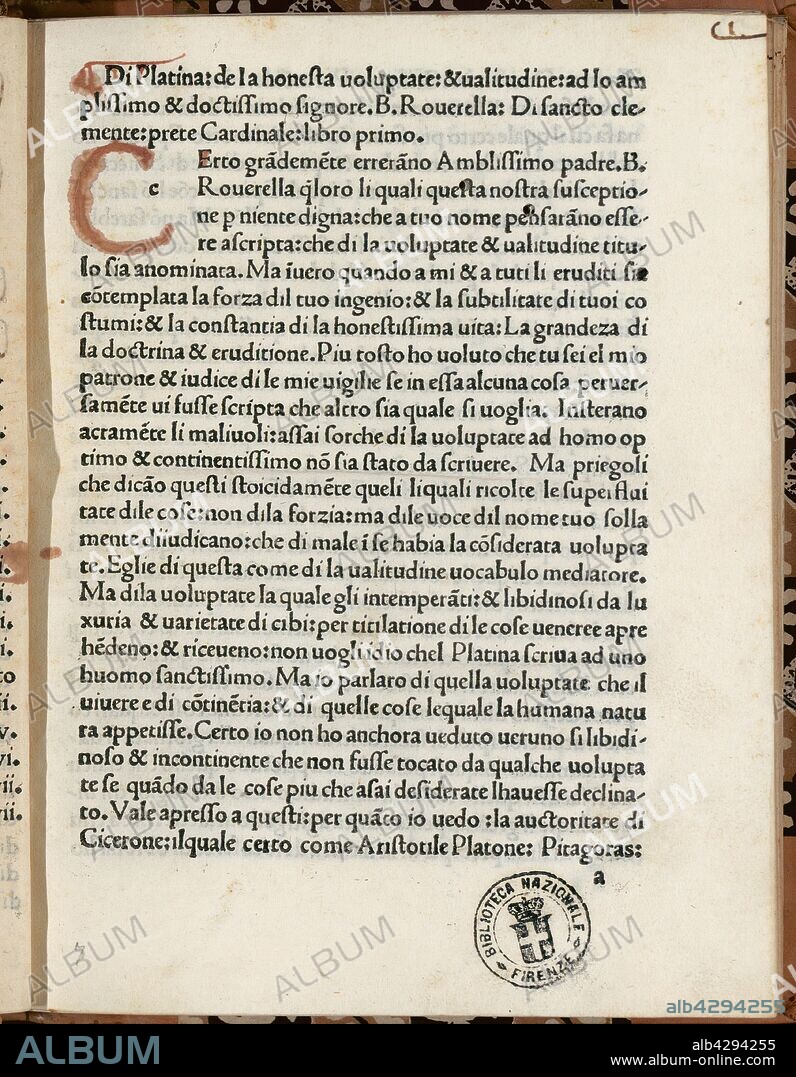 (1.
Di Platina: de la honesta uoluptate: & ualitudine: ad lo am
plissimo & doctissimo signore. B. Rouerella: Di sancto cle-
mente: prete Cardinale: libro primo.
C
c
Erto grãdemẽte errerãno Amblissimo padre. B.
Rouerella q̃loro li quali questa nostra susceptio-
ne p niente digna: che a tuo nome pensarãno esse-
re ascripta: che di la uoluptate & ualitudine titu-
lo sia anominata. Ma ĩuero quando a mi & a tuti li eruditi sie
cõtemplata la forza dil tuo ingenio: & la subtilitate di tuoi co
stumi: & la constantia di la honestissima uita: La grandeza di
la doctrina & eruditione. Piu tosto ho uoluto che tu sei el mio
patrone & iudice di le mie uigilie se in essa alcuna cosa peruer-
samẽte ui fusse scripta che altro sia quale si uoglia. Insterano
acramẽte li maliuoli: assai forche di la uoluptate ad homo op
timo & continentissimo nõ sia stato da scriuere. Ma priegoli
che dicão questi stoicidamẽte queli li quali ricolte le superflui
tate di le cose: non dila forzia: ma dile uoce dil nome tuo solla
mente diiudicano: che di male ĩ se habia la cõsiderata uolupta
te. Eglie di questa come di la ualitudine uocabulo mediatore.
Ma dila uoluptate la quale gli intemperãti: & libidinosi da lu
xuria & uarietate di cibi: per titilatione di le cose ueneree apre
hẽdeno: & riceueno: non uogli idio chel Platina scriua ad uno
huomo sanctissimo. Ma io parlaro di quella uoluptate che il
uiuere e di cõtinẽtia: & di quelle cose lequale la humana natu
ra appetisse. Certo io non ho anchora ueduto ueruno si libidi-
noso & incontinente che non fusse tocato da qualche uolupta
te se quãdo da le cose piu che asai desiderate lhauesse declina-
to. Vale apresso a questi: per quãto io uedo: la auctoritate di
Cicerone: ilquale certo come Aristotile Platone: Pitagoras:
a
BIBLIOTECA NAZIONALE
FIRENZE
to
ii.
v.
vi.
vii.
vii.
ALBUM
alb4294255
ALBUM
alb4294255
www.album-online.com